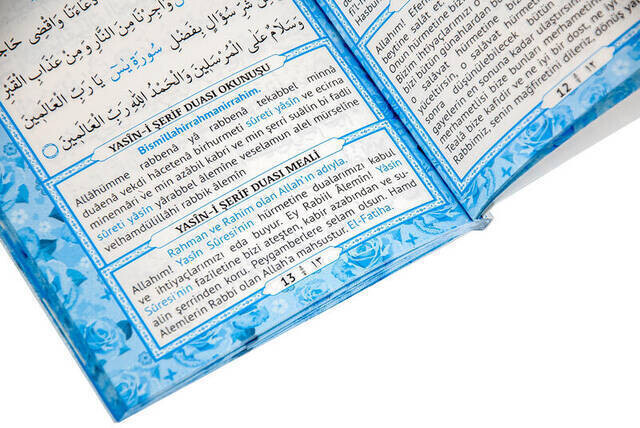 دُعَاءَنَا وَاقْضِ
وَاَجِرْنَا مِنَ النَّارِ وَمِنْ عَذَابِ الْقَبْرِ
شَرِّ سُؤَالٍ بِفَضْلِ سُورَةِ يٰسٓ يَا رَبَّ الْعَالَمِينَ
وَسَلَامٌ عَلَى الْمُرْسَلِينَ وَالْحَمْدُ لِلّٰهِ رَبِّ الْعَالَمِينَ
YASİN-İ ŞERİF DUASI OKUNUŞU
Bismillahirrahmanirrahim.
Allâhümme rabbenâ yâ rabbenâ tekabbel minnâ
duâenâ vekdi hâcetenâ birhurmeti sûreti yâsîn ve ecirna
minennâri ve min azâbil kabri ve min şerri suâlin bi fadli
sûreti yâsîn yârabbel âlemîne veselamun alel mürselîne
velhamdülillâhi rabbilk âlemîn
YASİN-İ ŞERİF DUASI MEALİ
Rahman ve Rahim olan Allah'ın adıyla.
Allahım! Yasin Sûresi'nin hürmetine dualarımızı kabul
ve ihtiyaçlarımızı eda buyur. Ey Rabbil Alemin! Yâsîn
Sûresi'nin faziletine bizi ateşten, kabir azabından ve su-
alin şerrinden koru. Peygamberlere selam olsun. Hamd
Alemlerin Rabbi olan Allah'a mahsustur. El-Fatiha.
13 ١٣
Allahım! Efe
beytine salât et
önü hürmetine bizi
Bizim ihtiyaçlarımızı o
bizi bütün günahlardan bu
o salâvat hürmetine
yüceltirsin, o salâvat
sonra düşünülebilecek bütün
gayelerin en sonuna kadar ulaştırırsın
merhametlisi bize bunları merhametin
Teâlâ bize kafidir ve ne iyi bir dost, ne iyi
Rabbimiz, senin mağfiretini dileriz, dönüş
12 ١٢